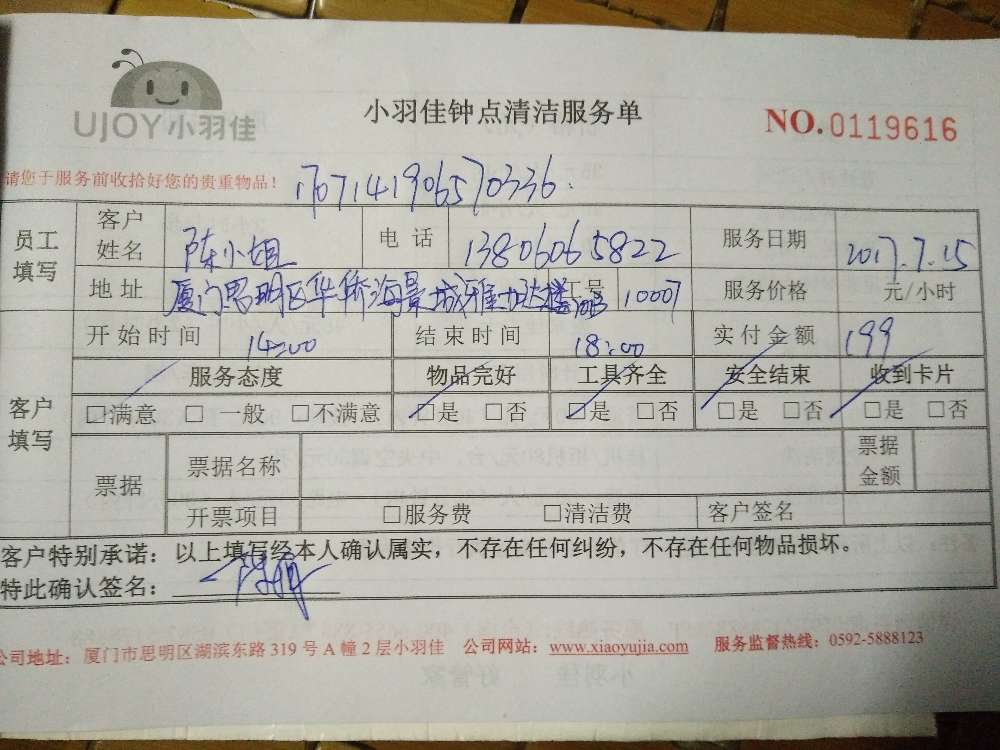 UJOY小羽佳
小羽佳钟点清洁服务单
NO.0119616
请您于服务前收拾好您的贵重物品！
170714190657 0336.
员工填写 客户姓名 陈小姐 电话 13806065822 服务日期 2017.7.15
地址 厦门思明区华侨海景城雅 楼 工号 10007 服务价格 元/小时
客户填写 开始时间 14:00 结束时间 18:00 实付金额 199
服务态度 物品完好 工具齐全 安全结束 收到卡片
□满意 □一般 □不满意 □是 □否 □是 □否 □是 □否 □是 □否
票据 票据名称 票据金额
开票项目 □服务费 □清洁费 客户签名
客户特别承诺：以上填写经本人确认属实，不存在任何纠纷，不存在任何物品损坏。
特此确认签名：
公司地址：厦门市思明区湖滨东路319号A幢2层小羽佳 公司网站：www.xiaoyujia.com 服务监督热线：0592-5888123